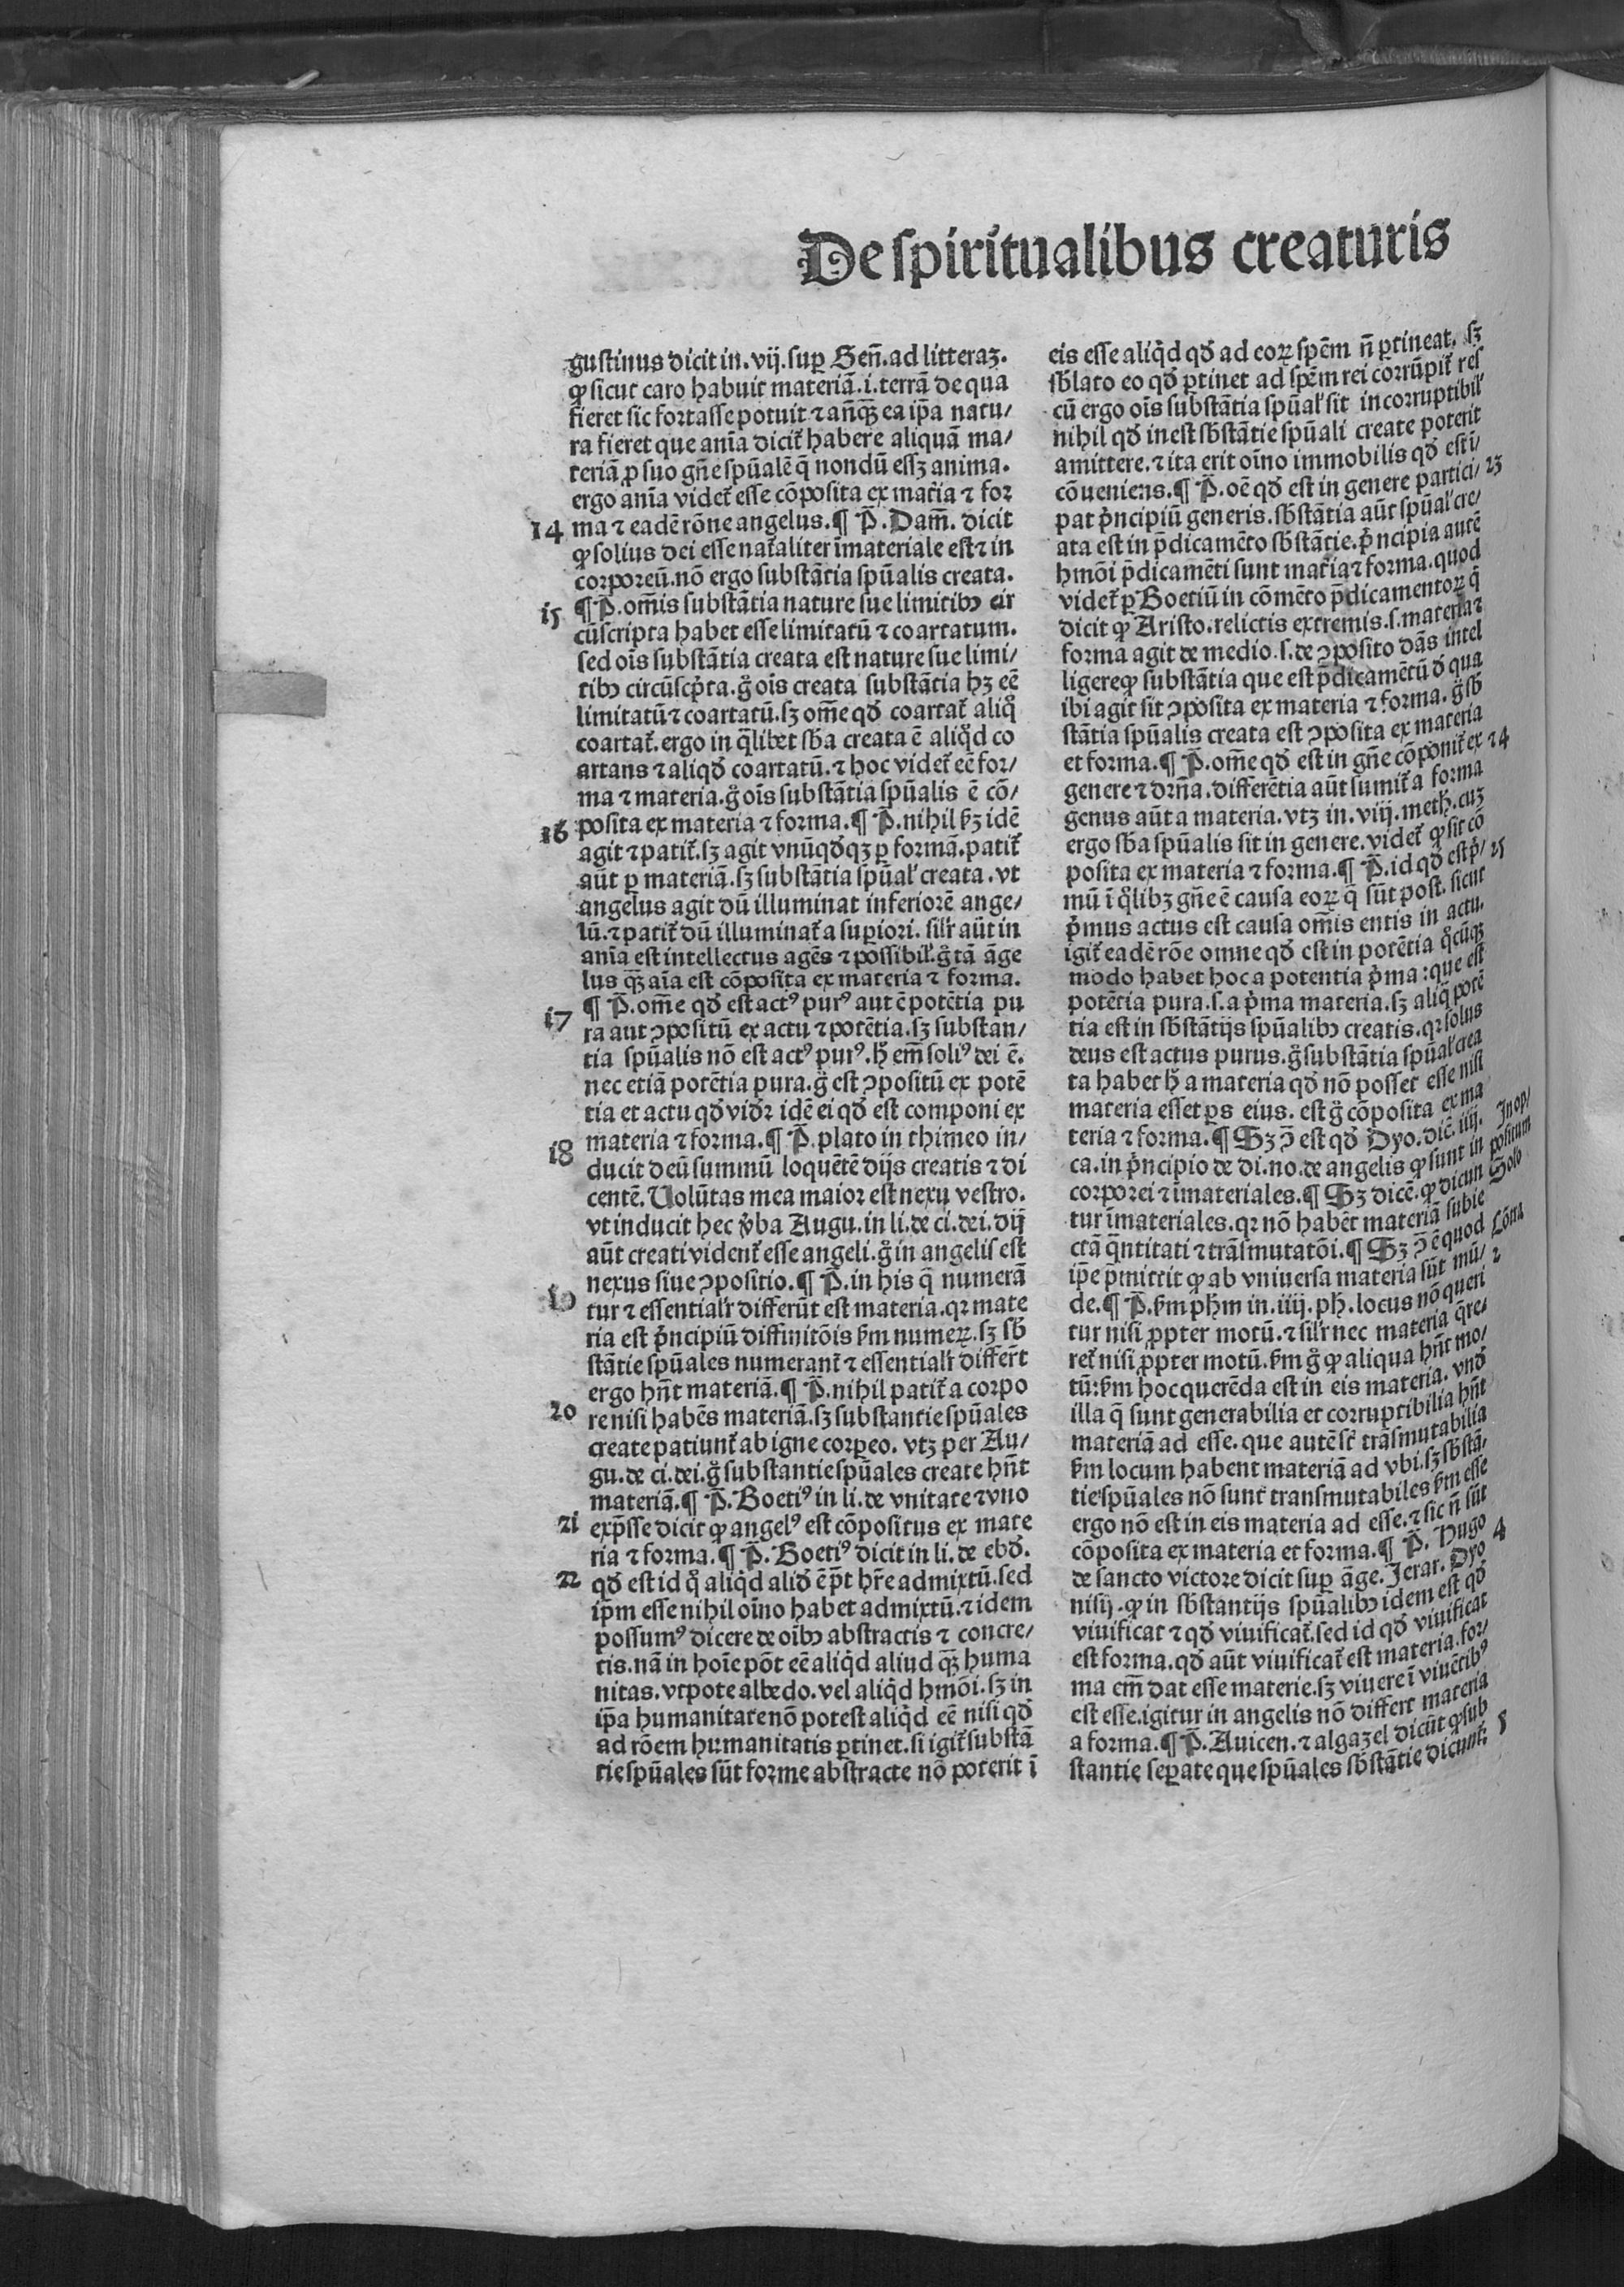 De spiritualibus creaturis
gustinus dicit in .vij. suꝑ Geñ. ad litteraꝫ.
ꝙ sicut caro habuit materiā .i. terrā de qua
fieret sic fortasse potuit ⁊ añqꝫ̄ ea ip̄a natu/
ra fieret que anīa dicit᷑ habere aliquā ma/
teriā ꝓ suo gn̄e spūalē q̄ nondū essꝫ anima.
ergo anīa videt᷑ esse cōposita ex mat̄ia ⁊ for
14 ma ⁊ eadē rōne angelus. ¶ P̄. Dam̄. dicit
ꝙ solius dei esse nat᷑aliter īmateriale est ⁊ in
corporeū. nō ergo substātia spūalis creata.
15 ¶ P̄. om̄is substātia nature sue limitibꝰ cir
cūscripta habet esse limitatū ⁊ coartatum.
sed oīs substātia creata est nature sue limi/
tibꝰ circūscp̄ta. g̊ oīs creata substātia hꝫ eē
limitatū ⁊ coartatū. sꝫ om̄e qđ coartat᷑ aliq̊
coartat᷑. ergo in q̄libet sb̄a creata ē aliq̊d co
artans ⁊ aliqđ coartatū. ⁊ hoc videt᷑ eē for/
ma ⁊ materia. g̊ oīs substātia spūalis ē cō/
16 posita ex materia ⁊ forma. ¶ P̄. nihil ẜꝫ idē
agit ⁊ patit᷑. sꝫ agit vnūqđqꝫ ꝑ formā. patit᷑
aūt ꝑ materiā. sꝫ substātia spūal' creata. vt
angelus agit dū illuminat inferiorē ange/
lū. ⁊ patit᷑ dū illuminat᷑ a suꝑiori. sil'r aūt in
anīa est intellectus agēs ⁊ possibil'. g̊ tā āge
lus qꝫ̄ aīa est cōposita ex materia ⁊ forma.
17 ¶ P̄. om̄e qđ est actꝰ purꝰ aut ē potētia pu
ra aut ꝯpositū ex actu ⁊ potētia. sꝫ substan/
tia spūalis nō est actꝰ purꝰ. h̊ em̄ soliꝰ dei ē.
nec etiā potētia pura. g̊ est ꝯpositū ex potē
tia et actu qđ vidꝛ idē ei qđ est componi ex
18 materia ⁊ forma. ¶ P̄. plato in thimeo in/
ducit deū summū loquētē dijs creatis ⁊ di
centē. Uolūtas mea maior est nexu vestro.
vt inducit hec v̄ba Augu. in li. de ci. dei. dij
aūt creati vident᷑ esse angeli. g̊ in angelis est
nexus siue ꝯpositio. ¶ P̄. in his q̄ numerā
19 tur ⁊ essential'r differūt est materia. qꝛ mate
ria est p̄ncipiū diffinitōis ẜm numeꝝ. sꝫ sb̄
stātie spūales numerant᷑ ⁊ essential'r differt̄
ergo hn̄t materiā. ¶ P̄. nihil patit᷑ a corpo
20 re nisi habēs materiā. sꝫ substantie spūales
create patiunt᷑ ab igne corꝑeo. vtꝫ per Au/
gu. de ci. dei. g̊ substantie spūales create hn̄t
materiā. ¶ P̄. Boetiꝰ in li. de vnitate ⁊ vno
21 exp̄sse dicit ꝙ angelꝰ est cōpositus ex mate
ria ⁊ forma. ¶ P̄. Boetiꝰ dicit in li. de ebđ.
22 qđ est id q̊ aliq̇d aliđ ē p̄t hr̄e admixtū. sed
ip̄m esse nihil oīno habet admixtū. ⁊ idem
possumꝰ dicere de oībꝰ abstractis ⁊ concre/
tis. nā in hoīe pōt eē aliq̇d aliud qꝫ̄ huma
nitas. vtpote albedo. vel aliq̇d hmōi. sꝫ in
ip̄a humanitate nō potest aliq̇d eē nisi qđ
ad rōem humanitatis ꝑtinet. si igit᷑ substā
tie spūales sūt forme abstracte nō poterit ī
eis esse aliq̇d qđ ad eoꝝ spēm n̄ ꝑtineat. sꝫ
sb̄lato eo qđ ꝑtinet ad spēm rei corrūpit᷑ res
cū ergo oīs substātia spūal' sit incorruptibil'
nihil qđ inest sb̄stātie spūali create poterit
amittere. ⁊ ita erit oīno immobilis qđ est ī/
cōueniens. ¶ P̄. oē qđ est in genere partici/ 23
pat p̄ncipiū generis. sb̄stātia aūt spūal' cre/
ata est in p̄dicamēto sb̄stātie. p̄ncipia autē
hmōi p̄dicamēti sunt mat̄ia ⁊ forma. quod
videt᷑ ꝑ Boetiū in cōmēto p̄dicamentoꝝ q̄
dicit ꝙ Aristo. relictis extremis .s. materia ⁊
forma agit de medio .s. de ꝯposito dās intel
ligere ꝙ substātia que est p̄dicamētū đ qua
ibi agit sit ꝯposita ex materia ⁊ forma. g̊ sb̄
stātia spūalis creata est ꝯposita ex materia
et forma. ¶ P̄. om̄e qđ est in gn̄e cōponit᷑ ex 24
genere ⁊ drn̄a. differētia aūt sumit᷑ a forma
genus aūt a materia. vtꝫ in .viij. meth̄. cuꝫ
ergo sb̄a spūalis sit in genere. videt᷑ ꝙ sit cō
posita ex materia ⁊ forma. ¶ P̄. id qđ est p̄/ 25
mū ī q̊libꝫ gn̄e ē causa eoꝝ q̄ sūt post. sicut
p̄mus actus est causa om̄is entis in actu.
igit᷑ eadē rōe omne qđ est in potētia q̊cūqꝫ
modo habet hoc a potentia p̄ma: que est
potētia pura .s. a p̄ma materia. sꝫ aliq̄ potē
tia est in sb̄stātijs spūalibꝰ creatis. qꝛ solus
deus est actus purus. g̊ substātia spūal' crea
ta habet h̊ a materia qđ nō posset esse nisi
materia esset ꝑs eius. est g̊ cōposita ex ma
teria ⁊ forma. ¶ Sꝫ ꝯ̄ est qđ Dyo. dic̄. iiij. In op/
ca. in p̄ncipio de di. no. de angelis ꝙ sunt in positum
corporei ⁊ īmateriales. ¶ Sꝫ dicē. ꝙ dicun Solo
tur īmateriales. qꝛ nō habēt materiā subie
ctā q̄ntitati ⁊ trāsmutatōi. ¶ Sꝫ ꝯ̄ ē quod Cōtra
ip̄e p̄mittit ꝙ ab vniuersa materia sūt mū/ 2
de. ¶ P̄. ẜm ph̄m in .iiij. ph̄. locus nō queri
tur nisi ꝓpter motū. ⁊ sil'r nec materia q̄re/
ret᷑ nisi ꝓpter motū. ẜm g̊ ꝙ aliqua hn̄t mo/
tū: ẜm hoc querēda est in eis materia. vnđ
illa q̄ sunt generabilia et corruptibilia hn̄t
materiā ad esse. que autē st̄ trāsmutabilia
ẜm locum habent materiā ad vbi. sꝫ sb̄stā/
tie spūales nō sunt transmutabiles ẜm esse
ergo nō est in eis materia ad esse. ⁊ sic n̄ sūt
cōposita ex materia et forma. ¶ P̄. Hugo 4
de sancto victore dicit suꝑ āge. Jerar. Dyo
nisij. ꝙ in sb̄stantijs spūalibꝰ idem est qđ
viuificat ⁊ qđ viuificat᷑. sed id qđ viuificat
est forma. qđ aūt viuificat᷑ est materia. for/
ma em̄ dat esse materie. sꝫ viuere ī viuētibꝰ
est esse. igitur in angelis nō differt materia
a forma. ¶ P̄. Auicen. ⁊ algazel dicūt ꝙ sub 5
stantie seꝑate que spūales sb̄stātie dicunt᷑